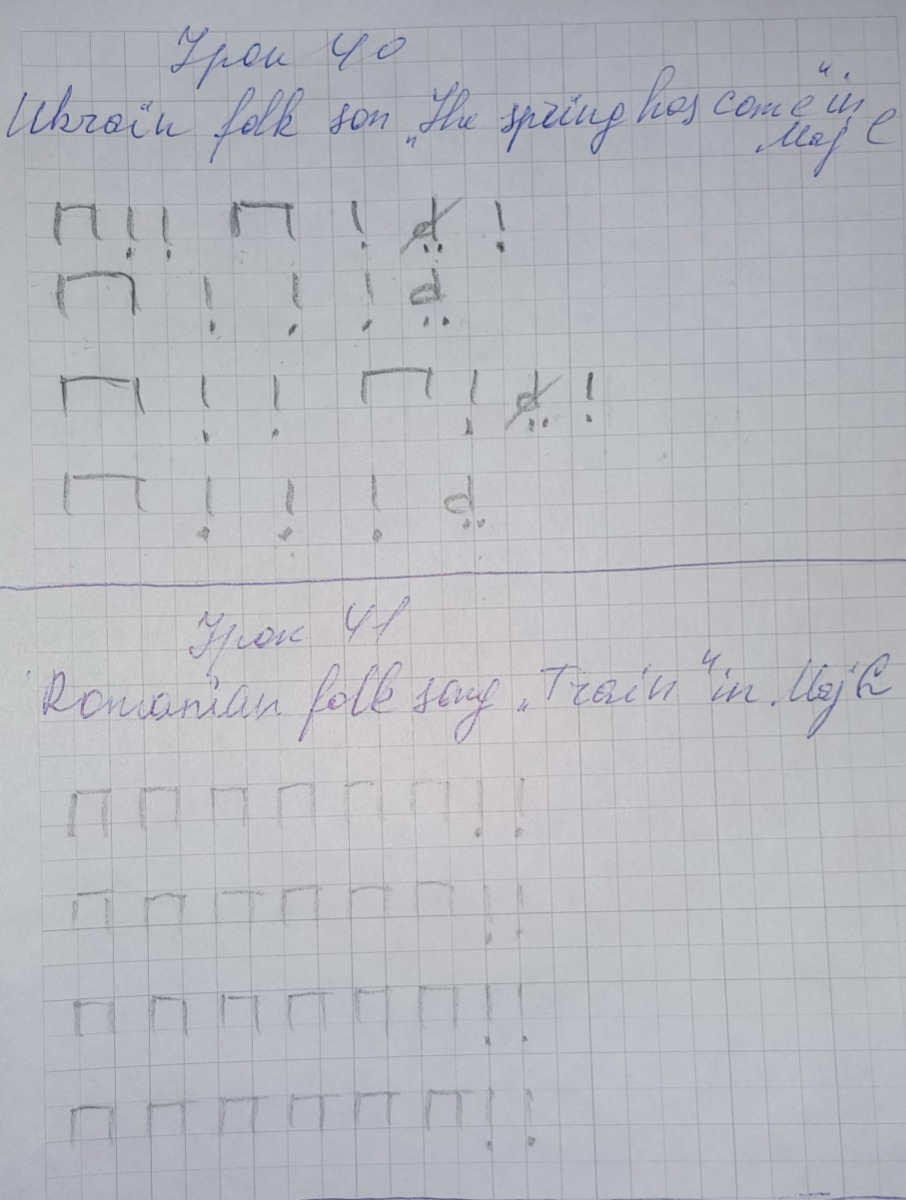 Урок 40
Ukrain folk son „The spring has come“ in
Maj C
Урок 41
Romanian folk song „Train“ in Maj C